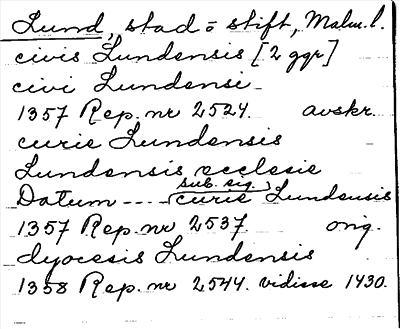 Lund, stad o stift, Malm.l.
civis Lundensis [2 ggr]
civi Lundensi
1357 Rep. nr 2524. avskr.
curie Lundensis
Lundensis ecclesie
sub. sig.
Datum ---- curie Lundensis
1357 Rep. nr 2537. orig.
dyocesis Lundensis
1358 Rep. nr 2544. vidisse 1430.